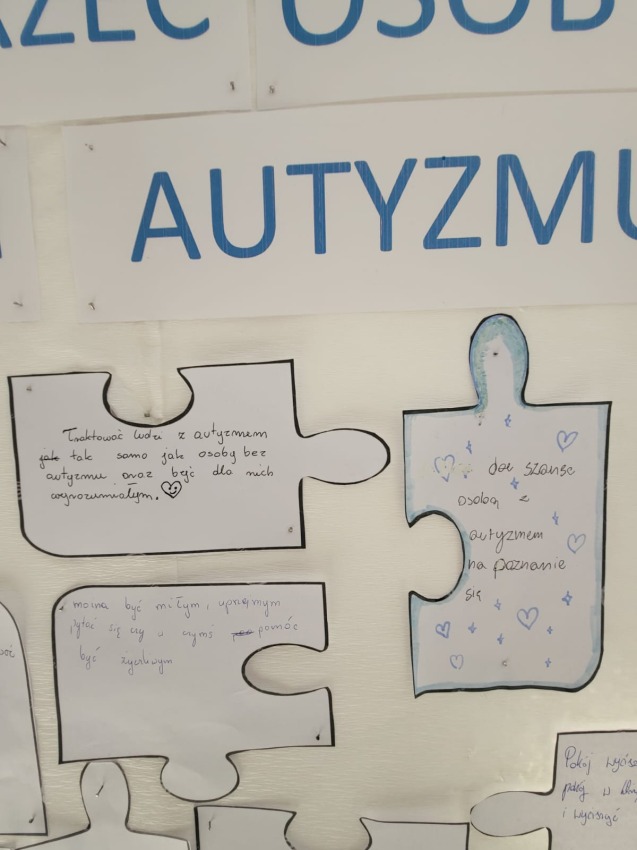 OSOB
AUTYZMU
Traktować ludzi z autyzmem
jak tak samo jak osoby bez
autyzmu oraz być dla nich
wyrozumiałym.
dać szansę
osobą z
autyzmem
na poznanie
się
można być miłym, uprzejmym
pytać się czy w czymś pomóc
być życzliwym
Pokój
pokój w
i wyciszyć